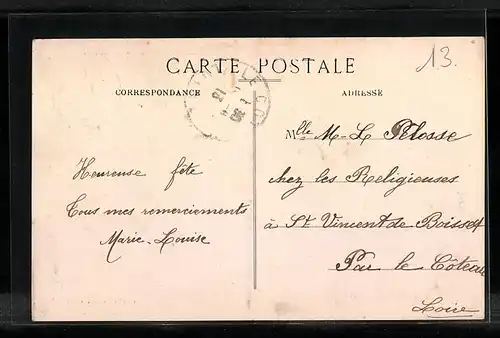 13.
CARTE POSTALE
CORRESPONDANCE
ADRESSE
Mlle M-L Pelosse
chez les Religieuses
à St Vincent de Boisset
Par le Côteau
Loire
Heureuse fête
Tous mes remerciements
Marie-Louise